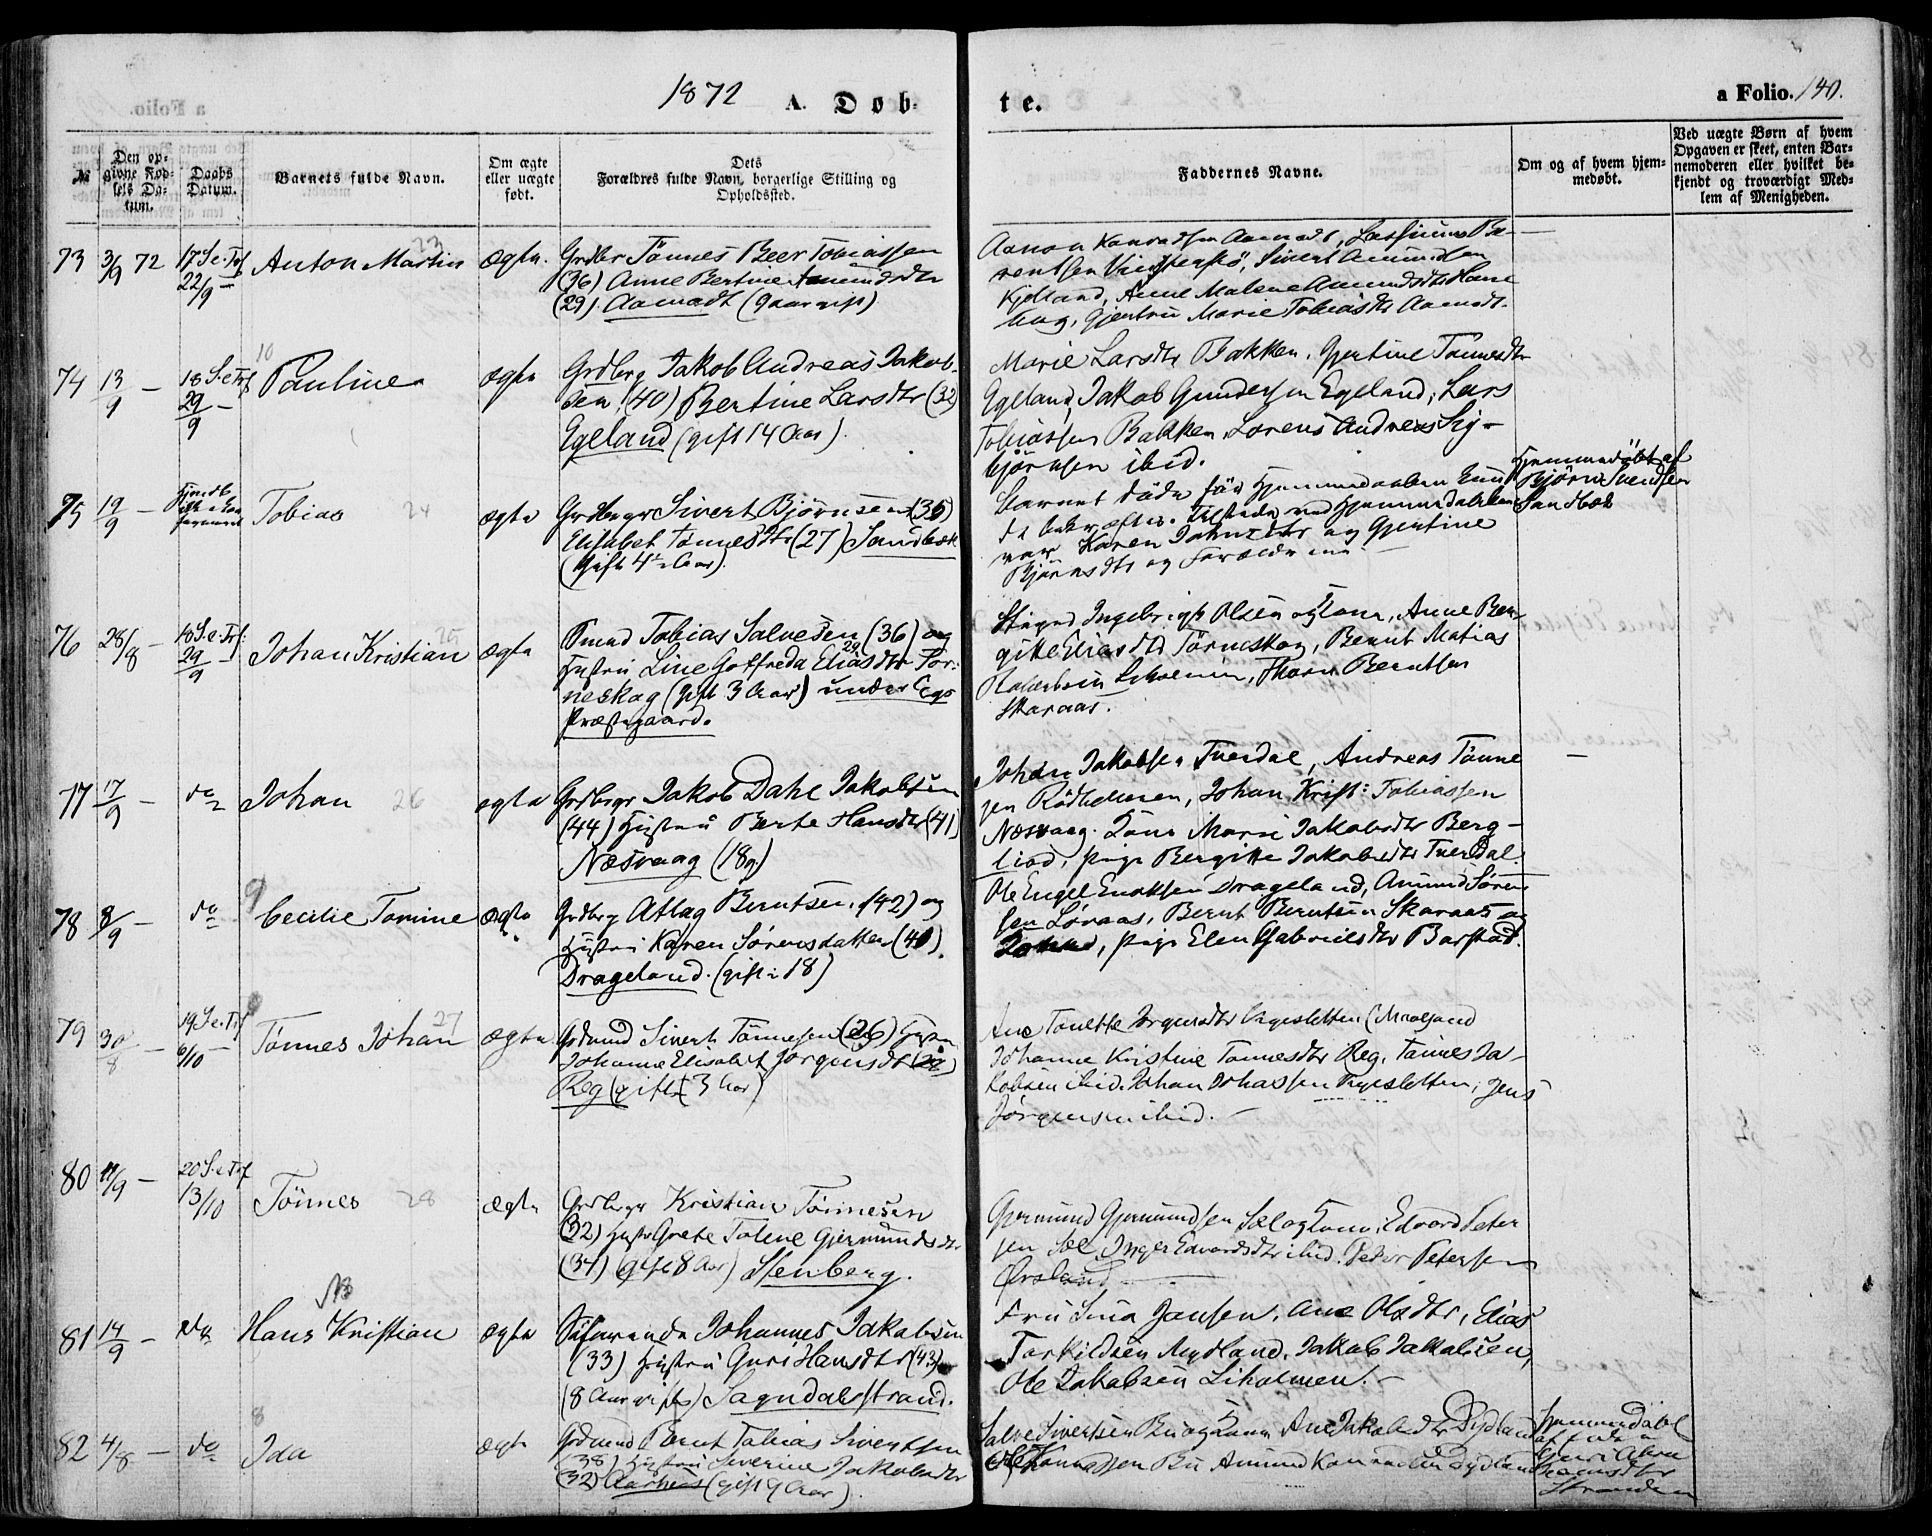 1872 A. Døb-
te.
a Folio. 140.
№
Den op-
givne Fød-
sels Da-
tum.
Daabs
Datum.
Barnets fulde Navn.
Om ægte
eller uægte
født.
Dets
Forældres fulde Navn, borgerlige Stilling og
Opholdssted.
Faddernes Navne.
Om og af hvem hjem-
medøbt.
Ved uægte Børn af hvem
Opgaven er skeet, enten Bar-
nemoderen eller hvilket be-
kjendt og troværdigt Med-
lem af Menigheden.
73 3/9 72 17 S. e. Trf
22/9 –
Anton Martin 23
ægte.
Grdbr Tönnes Beer Tobiassen
(36) Anne Bertine Amundsdtr
(29). Aamodt (9 aar gift)
Aanon Kanradsen Aamodt,
rentsen Sivert Amundsen
Kjelland, Anne Malene Amundsdtr Hane
haug, Gjertru Marie Tobiasdtr Aamodt.
74 13/9 – 18 S. e. Trf
29/9 –
10
Pauline
ægte
Grdbrg Jakob Andreas Jakob-
sen (40) Bertine Larsdtr (32)
Egeland (gift 14 Aar).
Marie Larsdtr Bakken, Gjertine Tønnesdtr
Egeland, Jakob Gundersen Egeland, Lars
Tobiassen Bakken, Lorens Andreas Sig-
björnsen ibid.
75 19/9 –
Tobias 24
ægte
Grdbrgr Sivert Björnsen (35)
Elisabet Tönnesdtr (27) Sandbæk
(Gift 4½ Aar).
Barnet döde för Hjemmedaaben kun
de bekræftes. Tilstede ved Hjemmedaaben
var Karen Jahnsdtr og Gjertine
Björnsdtr og Forældrene
Hjemmedöbt af
Björn Svendsen
Sandbæk
76 28/8 – 18 S. e. Trf:
29/9 –
Johan Kristian 25
ægte
Tobias Salvesen (36) og
Hustru Line Goffreda Eliasdtr 29 Tor-
neskog (gift 3 Aar) under Ege
Præstegaard.
Ingebrigt Olsen og Kone, Anne Ber-
gitte Eliasdtr Törneskog, Bernt Matias
Thore Berntsen
Skaraas.
77 17/9 – do
Johan 26
ægte
Grdbrgr Jakob Dahl Jakobsen
(44) Hustru Berte Hansdtr (41)
Næsvaag (18 g)
Johan Jakobsen Tuerdal, Andreas Tönne
sen Rödholmen, Johan Krist: Tobiassen
Næsvaag. Kone Marie Jakobsdtr Berg-
liod, pige Bergitte Jakobsdtr Tuerdal.
78 8/9 – do
9
Cecilie Tomine
ægte
Grdbrg Atlag Berntsen (42) og
Hustru Karen Sörensdatter (40).
Drageland. (gift i 18)
Ole Engel Enoksen Drageland, Amund Sören
sen Löraas, Bernt Berntsen Skaraas og
pige Elen Gabrielsdtr Barstad.
79 30/8 – 19 S. e. Trf
6/10 –
Tönnes Johan 27
ægte
Grdmnd Sivert Tönnesen (26) Hustru
Johanne Elisabet Jörgensdtr
Reg (gift 3 Aar)
Ane Tonette Jörgensdtr
Johanne Kristine Tønnesdtr Reg, Tønnes Ja-
kobsen ibid. Johan Johassen Jens
Jörgensen ibid. –
80 11/9 – 20 S. e. Trf
13/10
Tönnes 28
ægte
Grdbrgr Kristian Tönnesen
(32) Hustr Grete Tolene Gjermundsdtr
(34) (gift 8 Aar) Stenberg.
Gjermund Gjermundsen Sæl og Kone, Edvard Peter
sen Sæl, Inger Edvardsdtr ibid. Peter Petersen
Örsland –
81 14/9 – do
Hans Kristian
ægte
Söfarende Johannes Jakobsen
(33) Hustru Guri Hansdtr (43)
(8 Aar gifte) Sogndalsstrand.
Fru Sina Jansen, Ane Olsdtr, Elias
Torkildsen Mydland, Jakob Jakobsen,
Ole Jakobsen Liholmen. –
82 4/8 – do
8
Ida
ægte
Grdmnd Bernt Tobias Sivertsen
(38) Hustru Severine Jakobsdtr
(32) (gift 9 Aar).
Salve Sivertsen Bu og Kone, Ane Jakobsdtr Dydland
Bu Amund Konradsen Dydland
Hjemmedöbt
af
Stranden